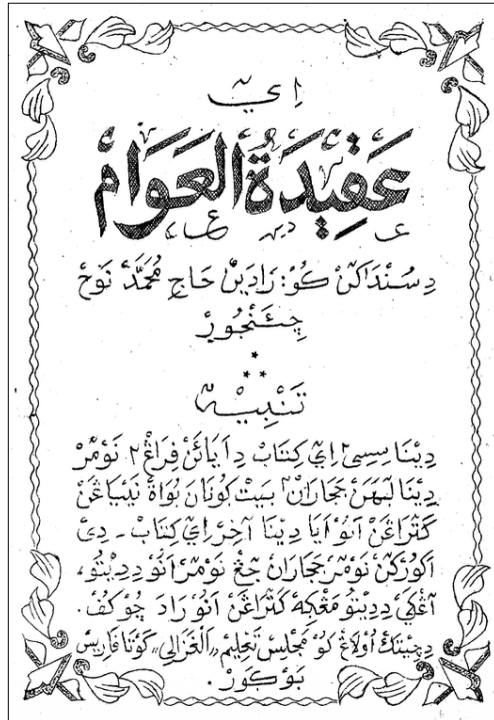 اِيَ
عَقِيْدَةُ الْعَوَامْ
دِسُنْدَاكَنْ كُوْ: رَادَيْنْ حَاجِ مُحَمَّدْ نُوْحْ
چِئَنْجُوْرْ
تَنْبِيْه
دِيْنَا سِسِيْ٢ اِيَ كِتَابْ دِاَيَائَنْ فِرَاڠْ٢ نَوْمَرْ
دِيْنَا لَبَهَنْ جَجَارَانْ٢ بَيْتْ كُوْنَانَ بُوَاةْ نَيْيَاڠَنْ
كَتَرَاڠَنْ اَنُوْ اَيَا دِيْنَا آخِرْ اِيَ كِتَابْ - دِيْ
اَكُوْرْكَنْ نَوْمَرْ جَجَارَانْ جَڠْ نَوْمَرْ اَنُوْ دِدِيْتُوْ،
آڠْكَيْ دِدِيْتُوْ مَڠْكِهْ كَتَرَاڠَنْ اَنُوْ رَادَ چُوْكُفْ.
دِچِيْتَكْ اُوْلَاڠْ كُوْ مَجْلِسْ تَعْلِيْمْ «اَلْغَزَالِيْ» كَوْتَا فَارِيْسْ
بَوْكَوْرْ.